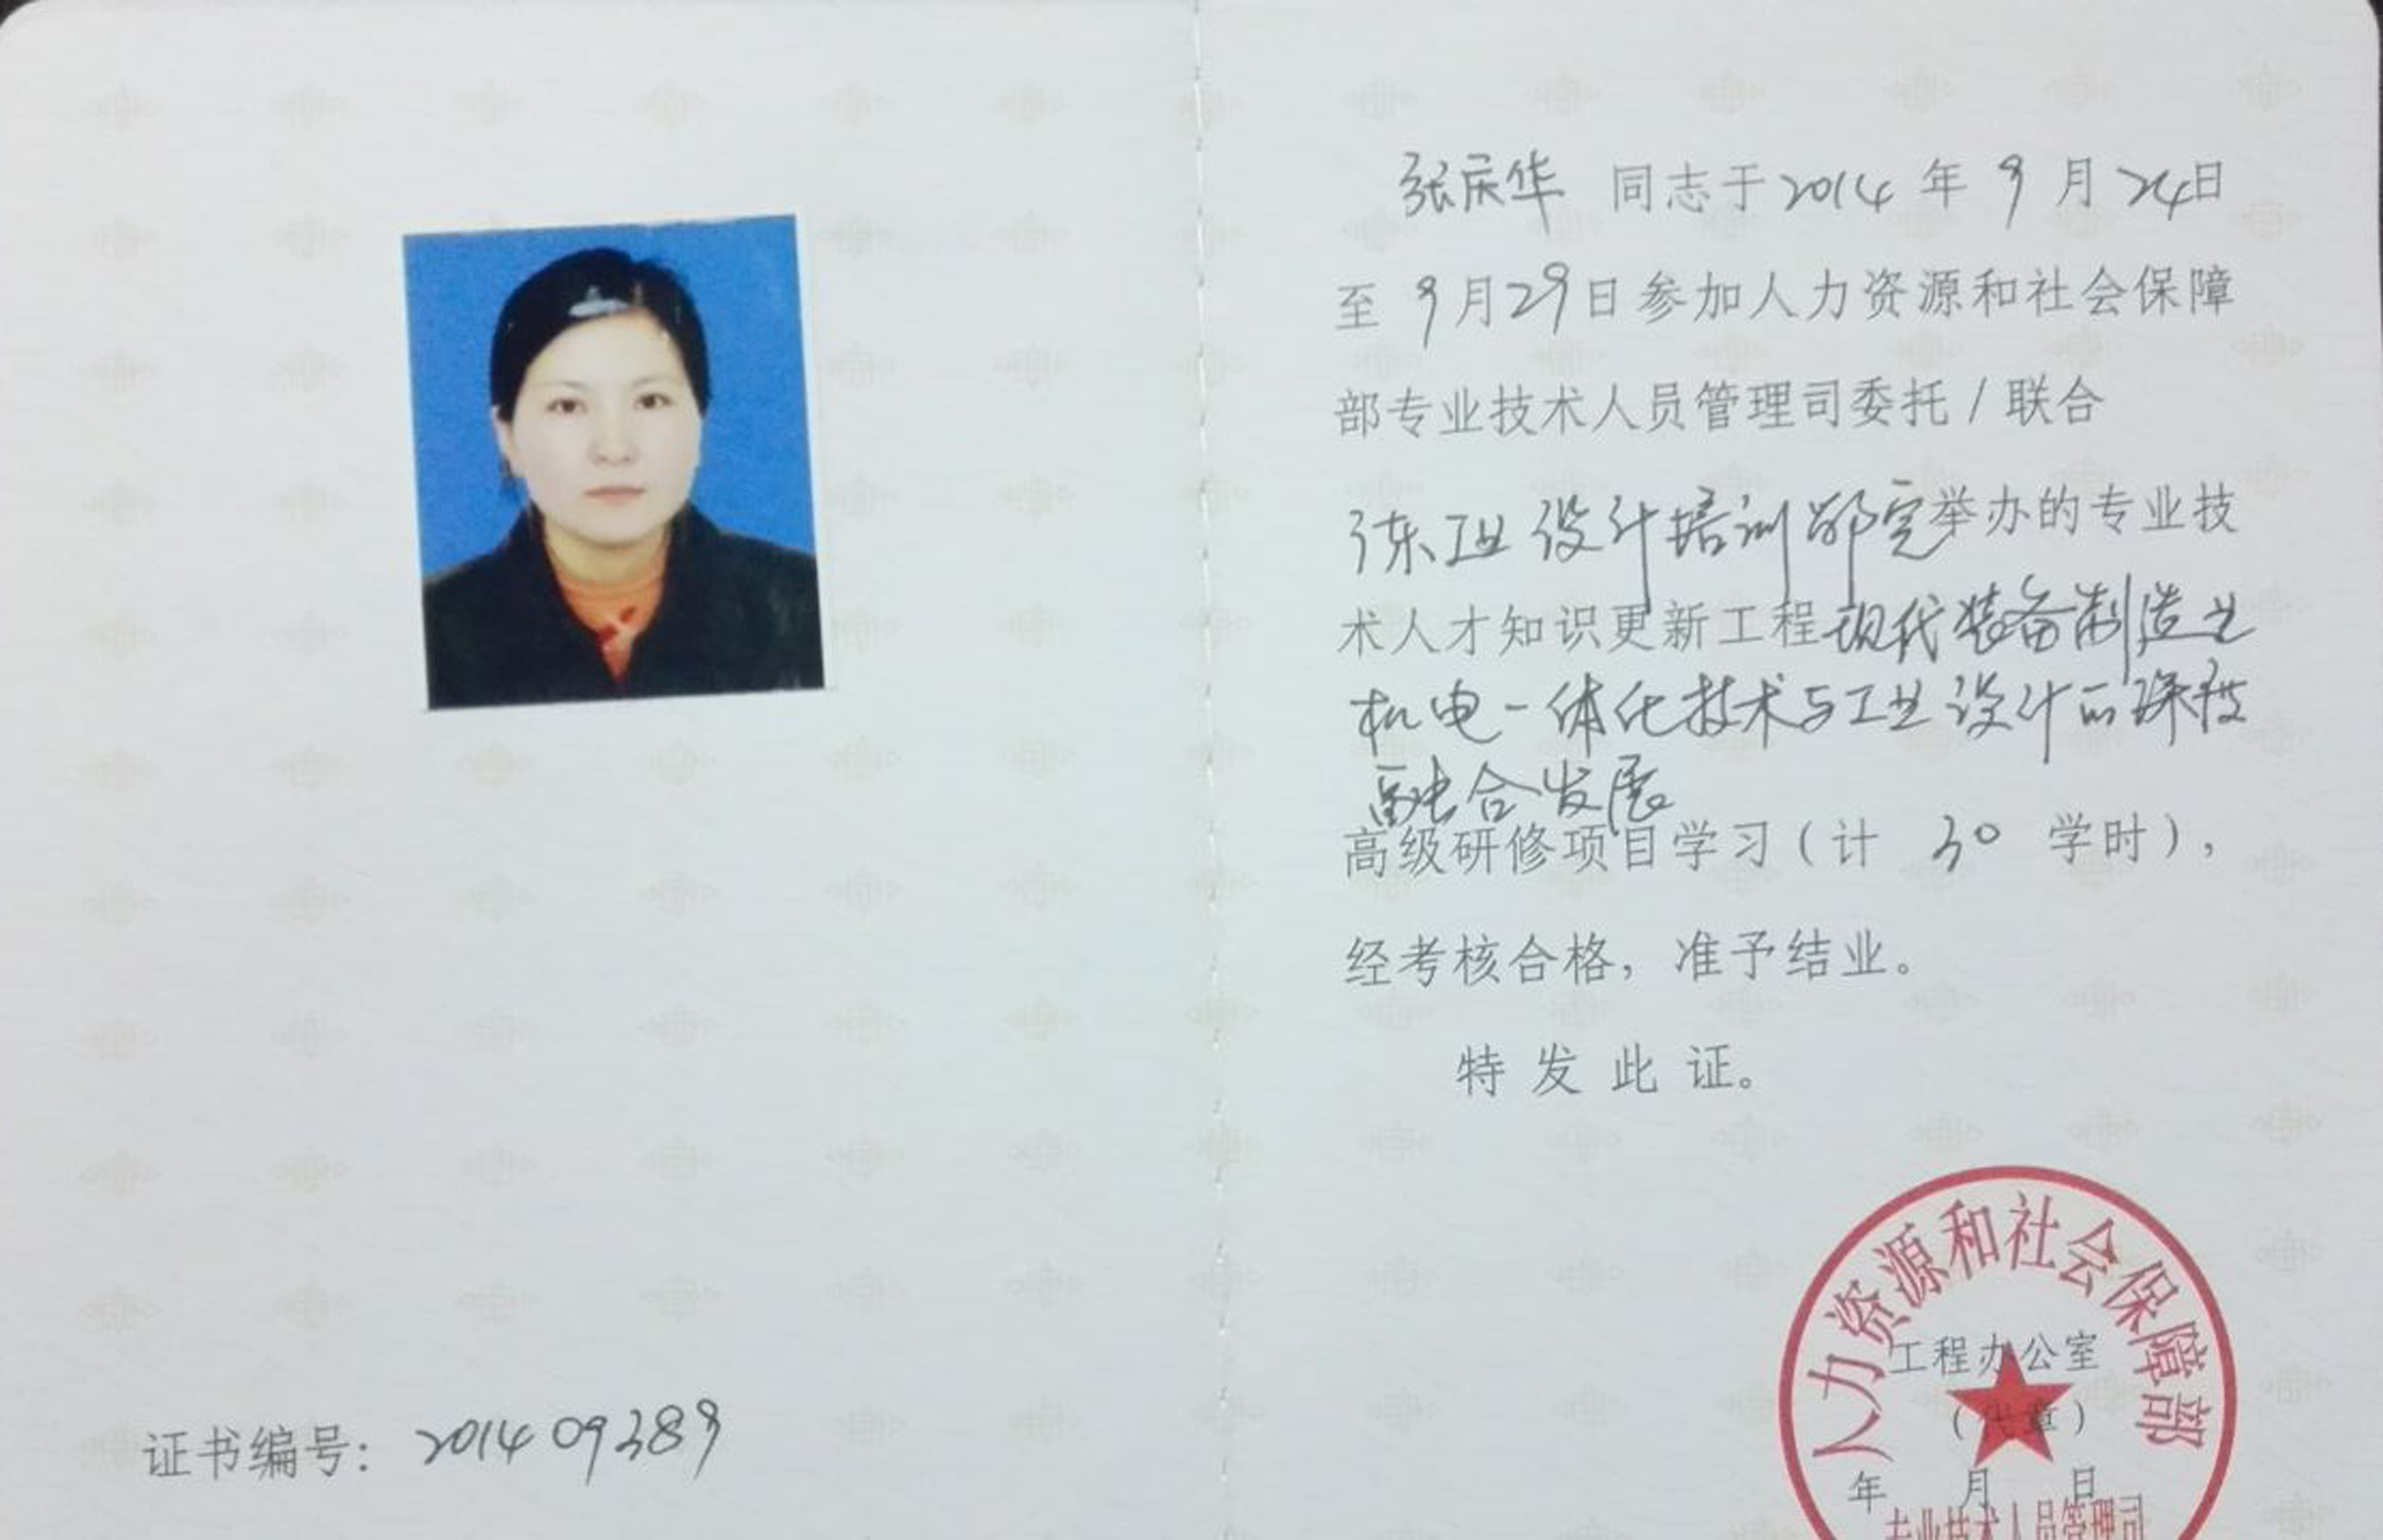 张庆华 同志于2014年9月24日
至9月29日参加人力资源和社会保障
部专业技术人员管理司委托/联合
工业设计培训 举办的专业技
术人才知识更新工程现代装备制造业
机电一体化技术与工业设计的深度
融合发展
高级研修项目学习(计 30 学时),
经考核合格,准予结业。
特发此证。
人力资源和社会保障部
工程办公室
(代章)
年 月 日
专业技术人员管理司
证书编号: 201409389